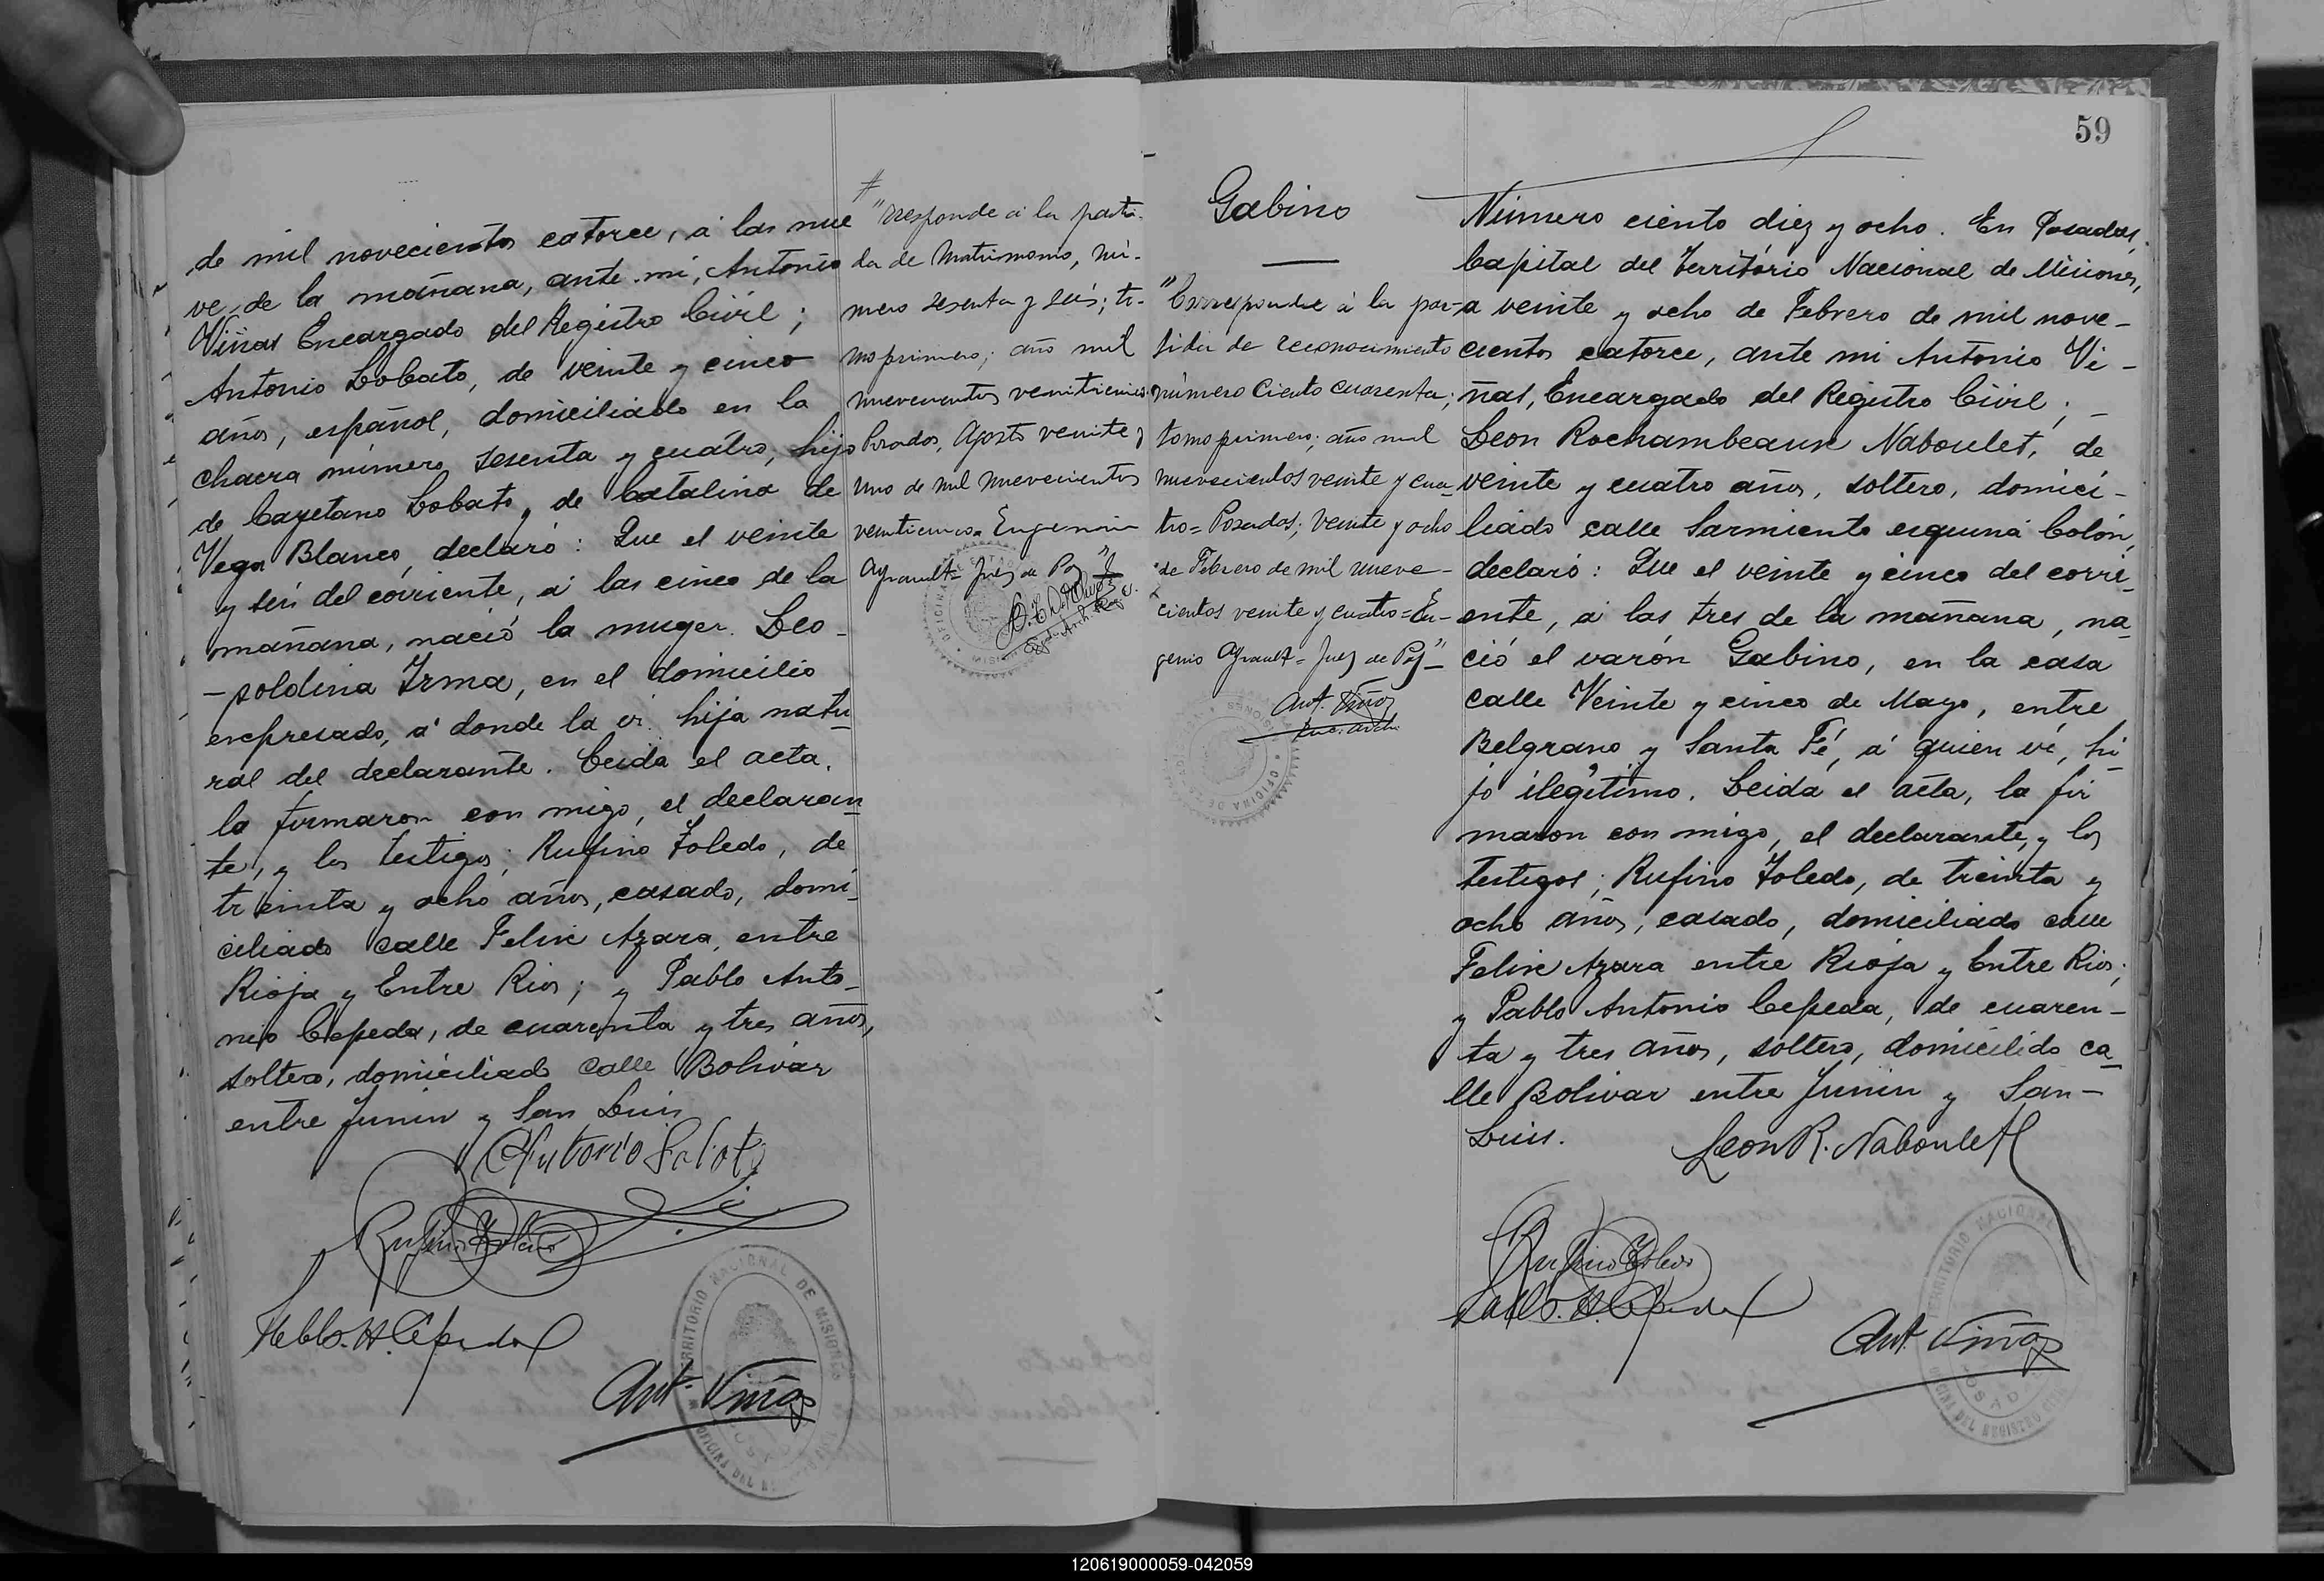 de mil novecientos catorce, á las nue
ve, de la mañana, ante mi, Antonio
Viñas Encargado del Registro Civil;
Antonio Lobato, de veinte y cinco
años, español, domiciliado en la
chacra número sesenta y cuatro, hijo
de Cayetano Lobato y de Catalina de
Vega Blanco, declaró: Que el veinte
y seis del corriente, á las cinco de la
mañana, nació la muger Leo-
-poldina Irma, en el domicilio
expresado, á donde la vi. hija natu-
ral del declarante. Leida el acta,
la firmaron con migo, el declaran-
te, y los testigos; Rufino Toledo, de
treinta y ocho años, casado, domi-
ciliado calle Felix Azara, entre
Rioja y Entre Rios; y Pablo Anto-
nio Cepeda, de cuarenta y tres años,
soltero, domiciliado calle Bolivar
entre Junin y San Luis
Antonio
Rufino Toledo
Pablo. A. Cepeda
Ant. Viñas
TERRITORIO NACIONAL DE MISIONES
OFICINA DEL REGISTRO CIVIL
#
"rresponde á la parti-
da de Matrimonio, nú-
mero sesenta y seis; to-
mo primero; año mil
nuevecientos veinticinco
Posadas, Agosto veinte y
uno de mil nuevecientos
veinticinco = Eugenio
Ayrault = Juez de Paz"
59
Gabino
"Corresponde á la par-
tida de reconocimiento
número Ciento cuarenta;
tomo primero; año mil
nuevecientos veinte y cua-
tro = Posadas; Veinte y ocho
de Febrero de mil nueve-
cientos veinte y cuatro = Eu-
genio Ayrault = Juez de Paz"
Ant. Viñas
Número ciento diez y ocho. En Posadas,
Capital del Território Nacional de Misiones,
a veinte y ocho de Febrero de mil nove-
cientos catorce, ante mi Antonio Vi-
ñas, Encargado del Registro Civil; -
Leon Rochambeaux Naboulet, de
veinte y cuatro años, soltero, domici-
liado calle Sarmiento esquina Colón,
declaró: Que el veinte y cinco del corri-
ente, á las tres de la mañana, na-
ció el varón Gabino, en la casa
calle Veinte y cinco de Mayo, entre
Belgrano y Santa Fé, á quien vi, hi-
jo ilegítimo. Leida el acta, la fir
maron con migo, el declarante, y los
testigos; Rufino Toledo, de treinta y
ocho años, casado, domiciliado calle
Felix Azara entre Rioja y Entre Rios;
y Pablo Antonio Cepeda, de cuaren-
ta y tres años, soltero, domicilido ca-
lle Bolivar entre Junin y San-
Luis.
Leon R. Naboulet
Rufino Toledo
Pablo. A. Cepeda
Ant. Viñas
TERRITORIO NACIONAL
OFICINA DEL REGISTRO CIVIL
120619000059-042059